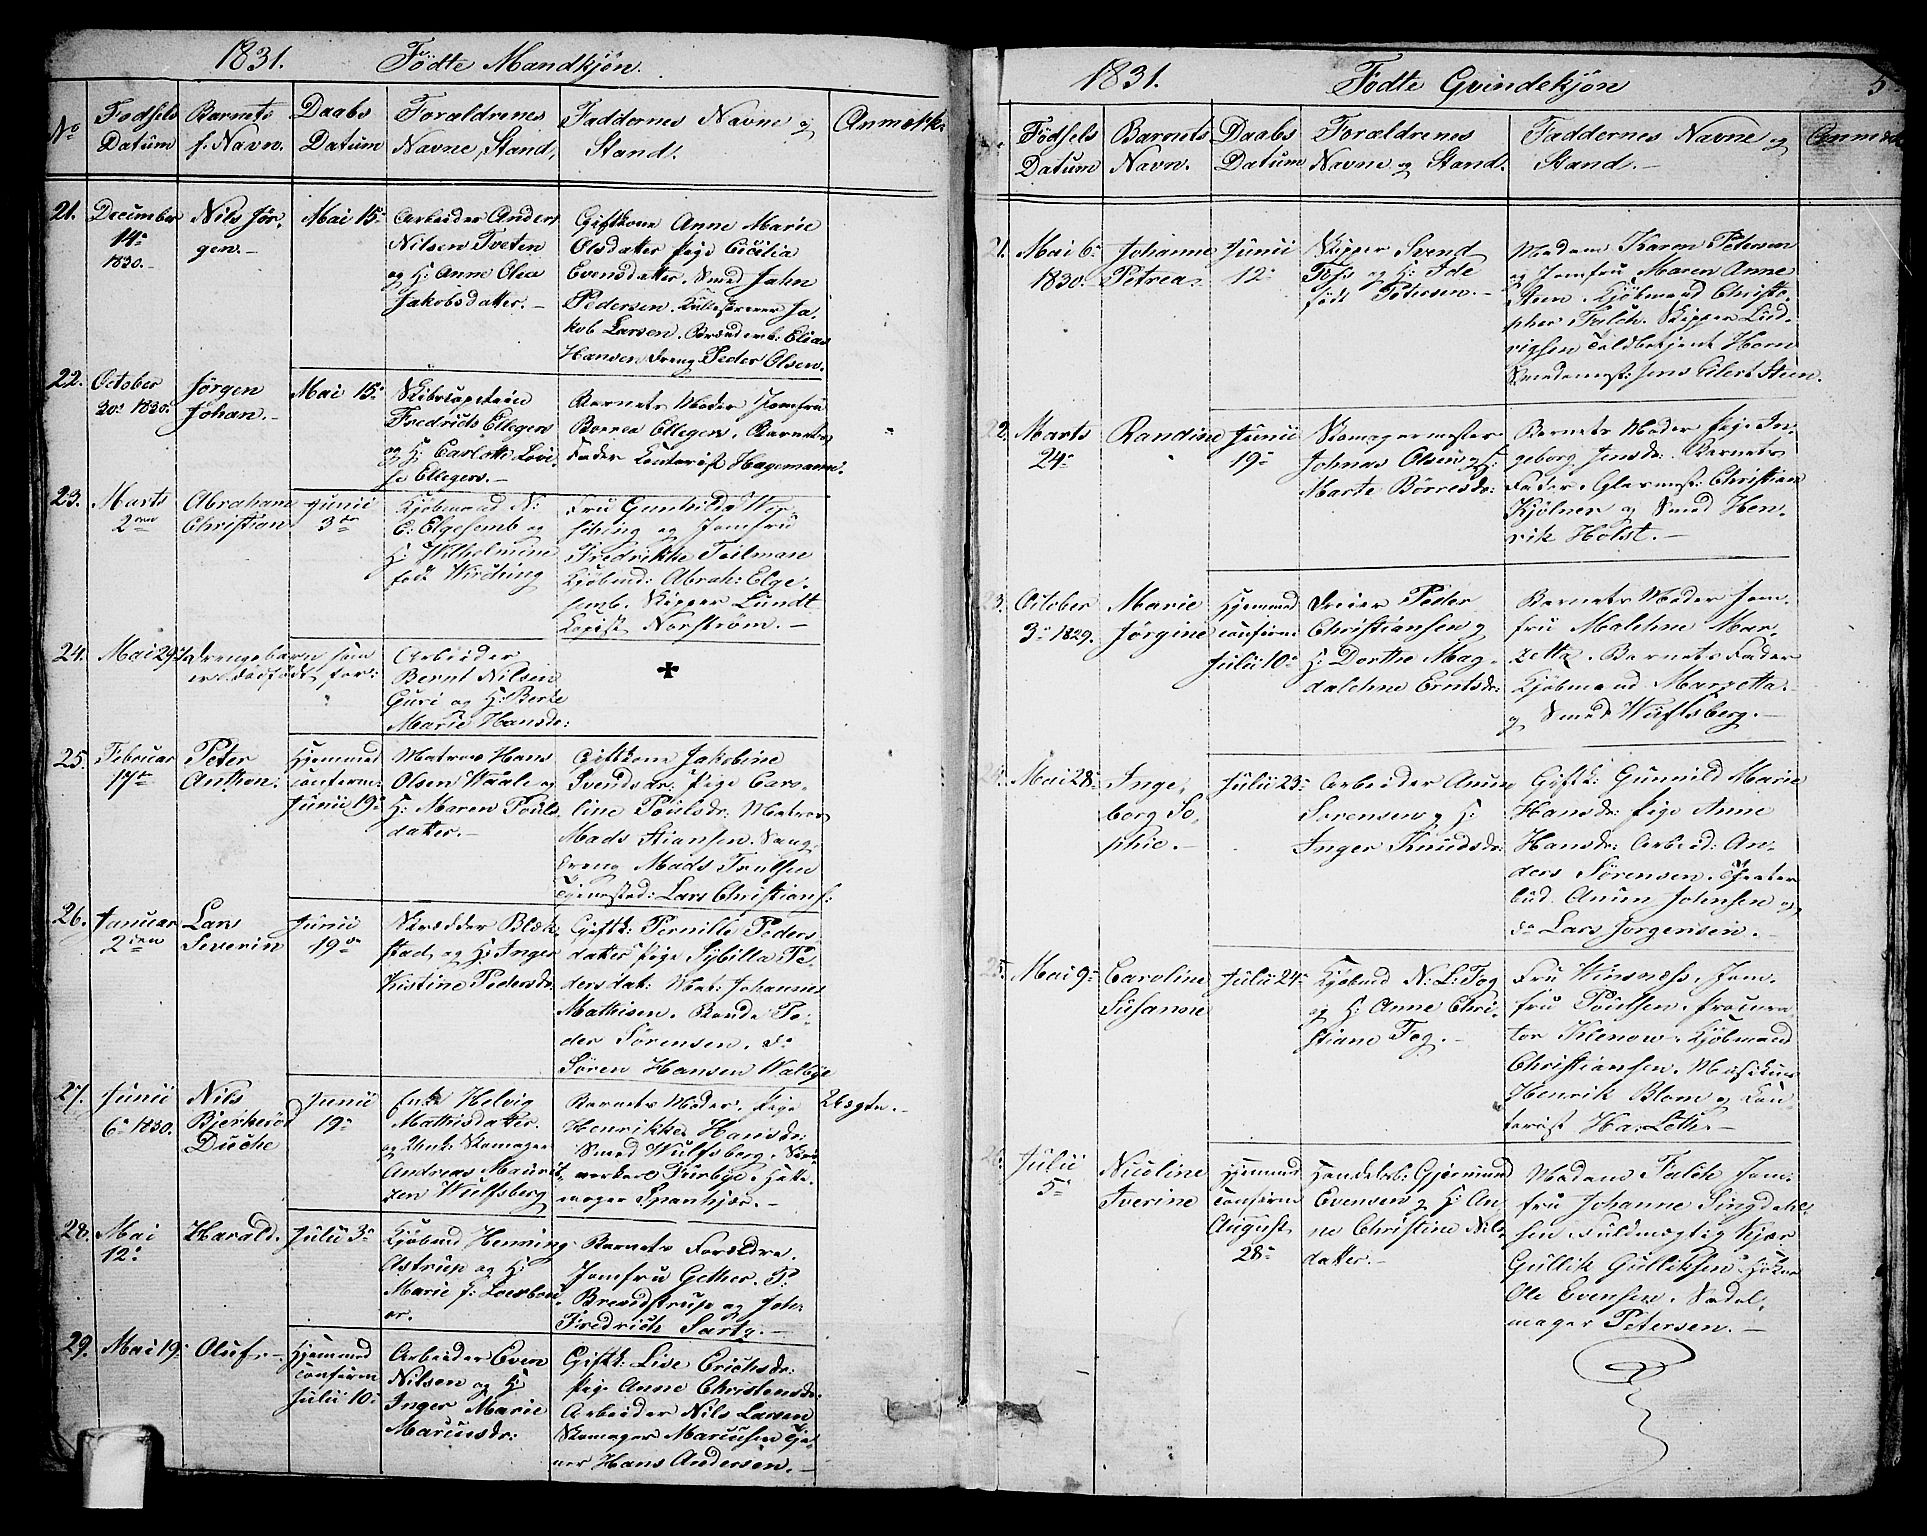 1831. Födte Mandkjön.
No
Fodsels
Datum
Barnets
f. Navn.
Daabs
Datum
Foraldrenes
Navne, Stand,
Faddernes Navne og
Stand.
Anmærk:
21.
December
14de
1830.
Nils Jör-
gen.
Mai 15de
Arbeider Anders
Nilsen Tveten
og H: Anne Olea
Jakobsdatter.
Giftkone Anne Marie
Olsdatter Pige Cicilia
Evensdatter. Smed Jahn
Pedersen. Ja-
kob Larsen. Elias
Hansen Dreng Peder Olsen.
22.
October
30: 1830
Jörgen
Johan.
Mai 15de
Skibscapitain
Fredrich Ellegers
og H: Carlotte Lovi-
se Ellegers.
Barnets Moder Jomfru
Borrea Ellegers. Barnets
Fader Contorist Hagemann.
23.
Marts
2den
Abraham
Christian
Junii
3die
Kjöbmand N:
C: Elgesemb og
H: Wilhelmine
föd Wirching
Fru Gunhilda Wir-
ching og Jomfru
Fredrikke Teilman
Kjöbmd: Abrah: Elge-
semb. Skipper Lundt
Copist Norström.
24.
Mai 29de
Drengebarn som
er dödfödt
Arbeider
Bernt Nilsen
Guri og H: Berte
Marie Hansdr:
25.
Februar
17de
Peter
Anthon:
Hjemmed
confirm:
Junii 19de
Matros Hans
Olsen Waale og
H: Maren Pouls
datter.
Giftkone Jakobine
Svendsdr: Pige Caro-
line Poulsdr: Matros
Mads Stiansen. Ung-
dreng Mads Trulsen
Tjenested: Lars Christians:
26.
Januar
2den
Lars
Severin
Junii
19de
Skrædder Blæk-
stad og H: Inger
Kistine Pedersdr:
Giftk: Pernille Peders-
datter Pige Sybilla Pe-
dersdat: Mat: Johannes
Mathisen. Bonde Pe-
der Sörensen. do
Sören Hansen Walbye
27.
Junii
6: 1830.
Nils
Bjerkeröd
Duche
Junii
19de
Enke Helvig
Mathisdatter.
og Unk: Skomager
Andreas Maurit-
zen Wulfsberg
Barnets Moder. Pige
Henrikke Hansdr:
Smed Wulfsberg.
Furbye. Hatte-
mager Spankjær.
Uægte.
28.
Mai
12te
Harald.
Julii 3die
Kjöbmd Henning
Astrup og H:
Marie f:
Barnets Forældre.
Jomfru Gether. P:
Brendstrup og Joh:
Fredrich Sartz.
29.
Mai 19de
Oluf.
Hjemmed
confirm
Julii 10de
Arbeider Even
Nilsen og H:
Inger Marie
Marcusdr:
Giftk: Live Erichsdr:
Pige Anne Christensdr:
Arbeider Nils Larsen
Skomager Marcusen Tje-
ner Hans Andersen.
1831. Födte Qvindekjön
5
Födsels
Datum
Barnets
Navn.
Daabs
Datum
Forældrenes
Navne og Stand.
Faddernes Navne og
Stand.
Anmærk
21.
Mai 6te
1830.
Johanne
Petrea
Junii
12te
Skipper Svend
Foss og H: Ide
födt Petersen.
Madam Karen Petersen
og Jomfru Maren Anne
Steen. Kjöbmand Christo-
pher Falch. Skipper Lud-
vigsen Toldbetjent Horn
Smedemest: Jens Eilert Steen.
22.
Marts
24de
Randine
Junii
19de
Skomagermester
Johnas Olsen og H:
Marte Börresdr:
Barnets Moder Pige In-
geborg Jensdr: Barnets
Fader. Glarmest: Christian
Kjölner og Smed Hen-
rik Holst.
23.
October
3de 1829.
Marie
Jörgine
Hjemmed
confirm:
Julii 10de
Dreier Peder
Christiansen og
H: Dorthe Mag-
dalehne Erntsdr:
Barnets Moder Jom-
fru Malehne Mar-
zetta. Barnets Fader
Kjöbmand Marzetta.
og Smed Wulfsberg.
24.
Mai 28de
Inge-
borg So-
phie.
Julii 23de
Arbeider Anun
Sorensen og H:
Inger Knudsdr:
Giftk: Gunnild Marie
Hansdr: Pige Anne
Hansdr: Arbeid: An-
ders Sörensen. Theater
bud. Anun Johnsen og
do Lars Jorgensen.
25.
Mai 9de
Caroline
Susanne
Julii 24de
Kjöbmd N: L: Fog
og H: Anne Chri-
stiane Fog.
Fru Winsness. Jom-
fru Poulsen. Procura-
tor Klenow. Kjöbmand
Christiansen. Musikus
Henrik Blom og Con-
torist Ha: Lötke
26.
Julii
5te
Nicoline
Iverine
Hjemmed
confirm
August
28de
Handelsb: Gjermund
Evensen og H: An-
ne Christine Nils-
datter.
Madam Falch Jom-
fru Johanne Singdahl-
sen Fuldmægtig Kjær
Gullik Gulliksen. Höker
Ole Evensen. Sadel-
mager Petersen.